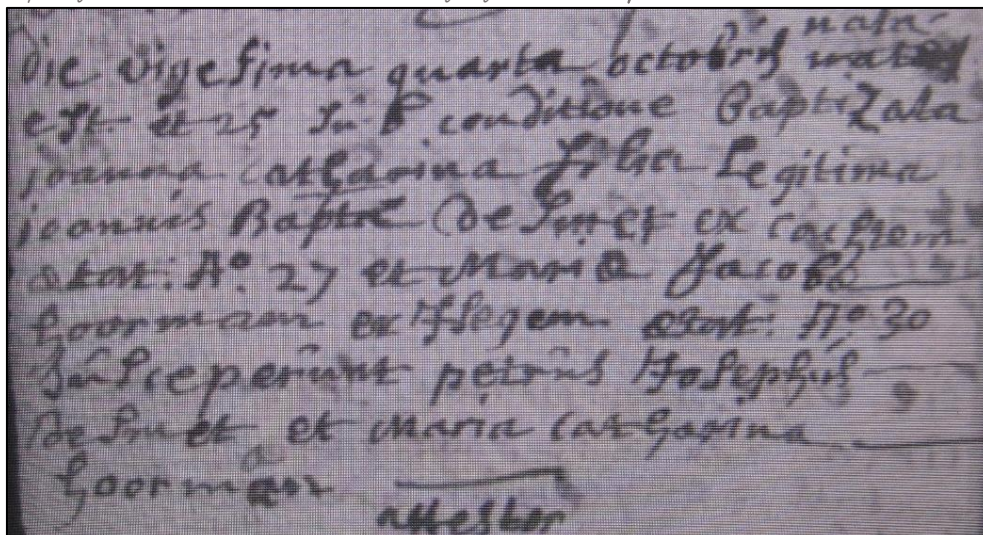 nata
die vigesima quarta octobris
est et 25 sub conditione Baptizata
joanna catharina filia Legitima
joannis Baptæ De Smet ex cachtem
ætat: A.º 27 et Mariæ Jacobæ
hoorman ex Isegem ætat: A.º 30
Susceperunt petrus Josephus
De Smet et Maria catharina
hoorman
attestor